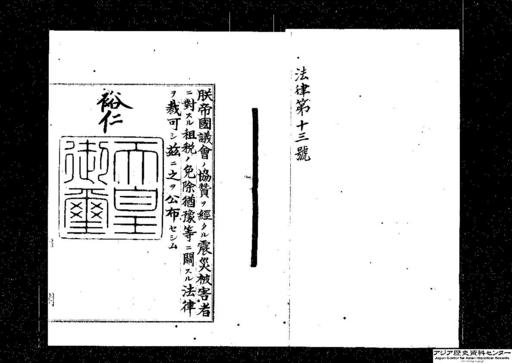 法律第十三號
朕帝國議會ノ協賛ヲ經タル震災被害者
ニ對スル租税ノ免除猶豫等ニ關スル法律
ヲ裁可シ茲ニ之ヲ公布セシム
裕仁
天皇
御璽
アジア歴史資料センター
Japan Center for Asian Historical Records